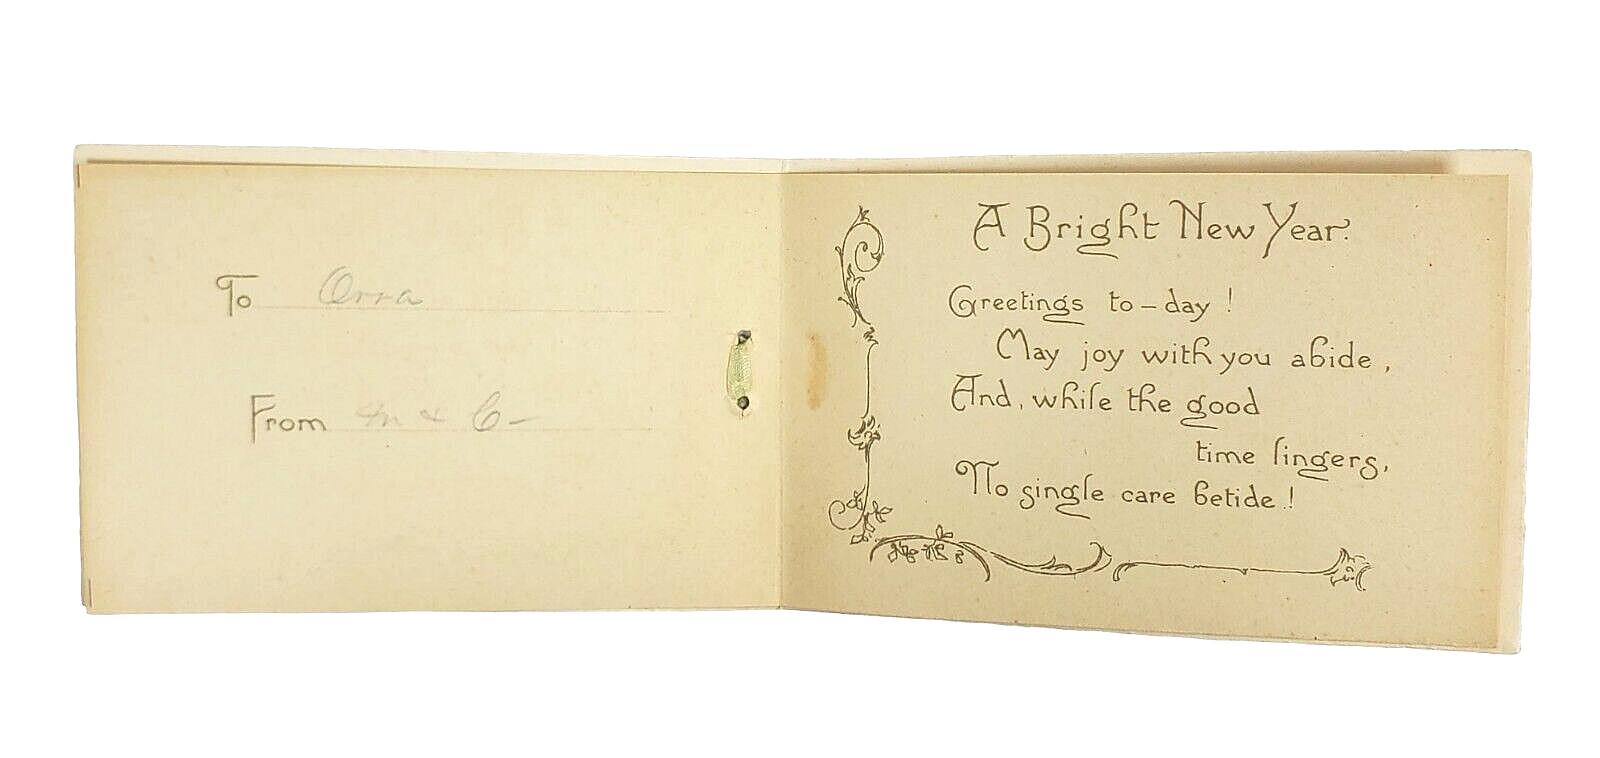 To Orra
From M & C-
A Bright New Year.
Greetings to-day!
May joy with you abide,
And, while the good
time lingers,
No single care betide!